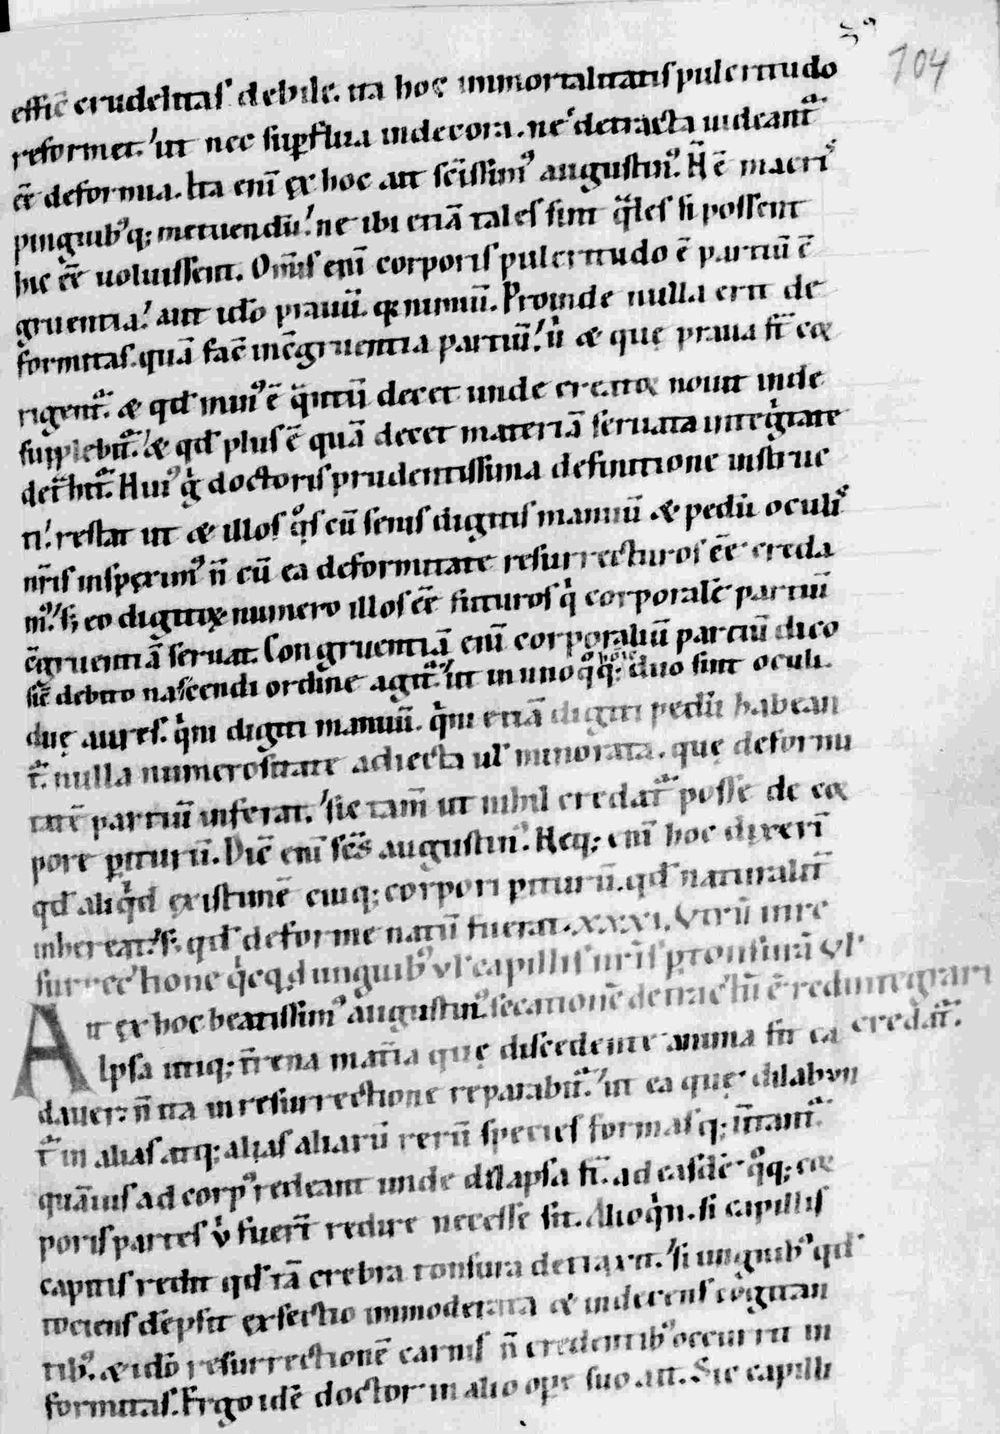 104
effic̄ crudelitas debile. ita hoc immortalitatis pulcritudo
reformet. ut nec sup̱flua indecora. nec detracta uideant᷑
ēē deformia. Ita eni̅ ex hoc ait sc̅issim᷒ augustin᷒. N̅ ē macris
pinguib᷒q; metuendū. ne ibi etiā tales sint q̅les si possent
hic ēē uoluissent. Om̅is eni̅ corporis pulcritudo ē partiū c̄
gruentia. aut id̅o prauū. q̅ nimiū. Proinde nulla erit de
formitas. quā fac̄ inc̄gruentia partiū. u̇ & quę praua s̅t coꝝ
rigent᷑. & qd̅ min᷒ ē q̅ntū decet unde creatoꝝ nouit inde
supplebit᷑. & qd̅ plus ē quā decet materiā seruata inteġtate
det̅het᷑. Hui᷒ g̊ doctoris prudentissima definitione instruc
ti. restat ut & illos q̊s cū senis digitis manuū & pedū oculis
nr̅is inspexim᷒ n̅ cū ea deformitate resurrecturos ēē creda
m᷒. s; eo digitoꝝ numero illos ēē futuros q̇ corporale̅ partiū
c̄gruentiā seruat. Congruentiā eni̅ corporaliū partiū dico
sic̄ debito nascendi ordine agit᷑. ut in uno q̊q; hoi̅e duo sint oculi.
duę aures. q̇ni digiti manuū. q̇ni etiā digiti pedū habean
t᷑. nulla numerositate adiecta ul̅ minorata. quę deformi
tatē partiū inferat. sic tam̅ ut nihil credat᷑ posse de coꝝ
pore p̱iturū. Dic̄ eni̅ sc̅s augustin᷒. Neq; eni̅ hoc dixeri̅
qd̅ aliq̇d existimē cuiq; corpori p̱iturū. qd̅ naturalit̅
inhereat. s; qd̅ deforme natū fuerat. XXXI. Vtrū in re
surrectione q̇cq̇d unguib᷒ ul̅ capillis nr̅is p̱ tonsurā ul̅
Ait ex hoc beatissim᷒ augustin᷒. secationē detractū ē redintegrari
Ipsa itaq; t̅rena mat̅ia quę discedente anima fit ca credat᷑.
dauer. n̅ ita in resurrectione reparabit᷑. ut ea quę dilabun
t᷑ in alias atq; alias aliarū rerū species formasq; u̅tant᷑.
quāuis ad corp᷒ redeant unde dilapsa s̅t. ad easdē q̊q; coꝝ
poris partes u̇ fuer̅t redire necesse sit. Alioq̇n. si capillis
capitis redit qd̅ tā crebra tonsura detraxit. si unguib᷒ qd̅
tociens dēpsit exsectio immoderata & indecens cogitan
tib᷒. & id̅o resurrectionē carnis n̅ credentib᷒ occurrit in
formitas. Ergo idē doctor in alio ope̅ suo ait. Sic capilli